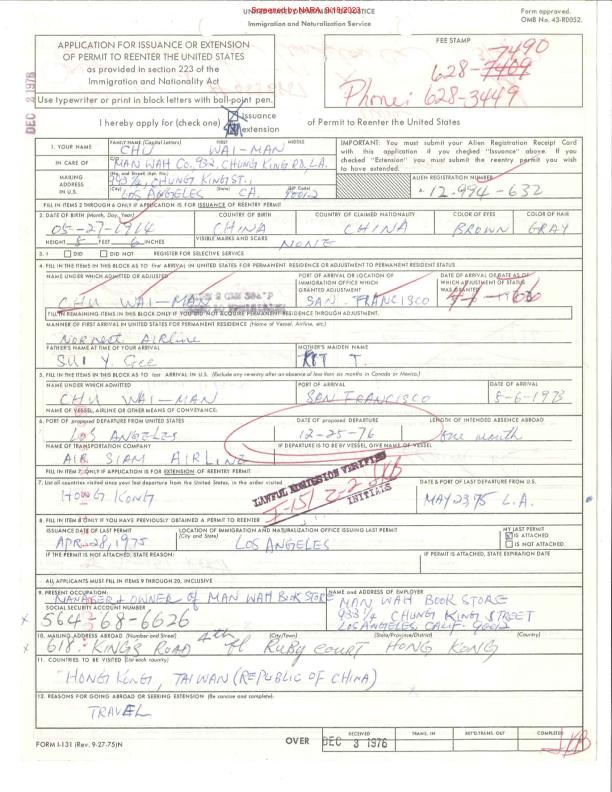 UNITED STATES DEPARTMENT OF JUSTICE
Scanned by NARA, 9/19/2023
Immigration and Naturalization Service
Form approved.
OMB No. 43-R0052.
APPLICATION FOR ISSUANCE OR EXTENSION
OF PERMIT TO REENTER THE UNITED STATES
as provided in section 223 of the
Immigration and Nationality Act
Use typewriter or print in block letters with ball-point pen.
DEC 2 1976
FEE STAMP
7490
628-7409
Phone: 628-3449
I hereby apply for (check one)
issuance
extension
of Permit to Reenter the United States
1. YOUR NAME
FAMILY NAME (Capital Letters) FIRST MIDDLE
CHU WAI-MAN
IN CARE OF
C/O
MAN WAH CO. 932, CHUNG KING RD, L.A.
MAILING ADDRESS IN U.S.
(No. and Street) (Apt. No.)
943 1/4, CHUNG KING ST.,
(City) (State) (ZIP Code)
LOS ANGELES CA. 90012
IMPORTANT: You must submit your Alien Registration Receipt Card with this application if you checked "Issuance" above. If you checked "Extension" you must submit the reentry permit you wish to have extended.
ALIEN REGISTRATION NUMBER
A- 12-994-632
FILL IN ITEMS 2 THROUGH 6 ONLY IF APPLICATION IS FOR ISSUANCE OF REENTRY PERMIT
2. DATE OF BIRTH (Month, Day, Year) COUNTRY OF BIRTH COUNTRY OF CLAIMED NATIONALITY COLOR OF EYES COLOR OF HAIR
05-27-1914 CHINA CHINA BROWN GRAY
HEIGHT 5 FEET 6 INCHES
VISIBLE MARKS AND SCARS
NONE
3. I DID DID NOT REGISTER FOR SELECTIVE SERVICE
4. FILL IN THE ITEMS IN THIS BLOCK AS TO first ARRIVAL IN UNITED STATES FOR PERMANENT RESIDENCE OR ADJUSTMENT TO PERMANENT RESIDENT STATUS
NAME UNDER WHICH ADMITTED OR ADJUSTED
PORT OF ARRIVAL OR LOCATION OF IMMIGRATION OFFICE WHICH GRANTED ADJUSTMENT
DATE OF ARRIVAL OR DATE AS OF WHICH ADJUSTMENT OF STATUS WAS GRANTED
CHU WAI-MAN SAN FRANCISCO
FILL IN REMAINING ITEMS IN THIS BLOCK ONLY IF YOU DID NOT ACQUIRE PERMANENT RESIDENCE THROUGH ADJUSTMENT.
MANNER OF FIRST ARRIVAL IN UNITED STATES FOR PERMANENT RESIDENCE (Name of Vessel, Airline, etc.)
NORWEST AIRLINE
FATHER'S NAME AT TIME OF YOUR ARRIVAL MOTHER'S MAIDEN NAME
SUI Y. Gee T.
5. FILL IN THE ITEMS IN THIS BLOCK AS TO last ARRIVAL IN U.S. (Exclude any re-entry after an absence of less than six months in Canada or Mexico.)
NAME UNDER WHICH ADMITTED PORT OF ARRIVAL DATE OF ARRIVAL
CHU WAI-MAN SAN FRANCISCO 8-6-1973
NAME OF VESSEL, AIRLINE OR OTHER MEANS OF CONVEYANCE:
6. PORT OF proposed DEPARTURE FROM UNITED STATES DATE OF proposed DEPARTURE LENGTH OF INTENDED ABSENCE ABROAD
LOS ANGELES 12-25-76 one month
NAME OF TRANSPORTATION COMPANY IF DEPARTURE IS TO BE BY VESSEL, GIVE NAME OF VESSEL
AIR SIAM AIRLINE
FILL IN ITEM 7 ONLY IF APPLICATION IS FOR EXTENSION OF REENTRY PERMIT
7. List all countries visited since your last departure from the United States, in the order visited
DATE & PORT OF LAST DEPARTURE FROM U.S.
HONG KONG MAY 23, 75 L.A.
LAWFUL ADMISSION VERIFIED
I-151
INITIALS
8. FILL IN ITEM 8 ONLY IF YOU HAVE PREVIOUSLY OBTAINED A PERMIT TO REENTER
ISSUANCE DATE OF LAST PERMIT LOCATION OF IMMIGRATION AND NATURALIZATION OFFICE ISSUING LAST PERMIT
(City and State)
MY LAST PERMIT
IS ATTACHED
IS NOT ATTACHED
APR. 28, 1975 LOS ANGELES
IF THE PERMIT IS NOT ATTACHED, STATE REASON: IF PERMIT IS ATTACHED, STATE EXPIRATION DATE
ALL APPLICANTS MUST FILL IN ITEMS 9 THROUGH 20, INCLUSIVE
9. PRESENT OCCUPATION: NAME and ADDRESS OF EMPLOYER
MANAGER & OWNER of MAN WAH BOOK STORE
MAN WAH BOOK STORE
SOCIAL SECURITY ACCOUNT NUMBER
933 1/4 CHUNG KING STREET
564-68-6626
LOS ANGELES, CALIF. 90012
10. MAILING ADDRESS ABROAD (Number and Street) (City/Town) (State/Province/District) (Country)
618 KINGS ROAD 4th fl RUBY COURT HONG KONG
11. COUNTRIES TO BE VISITED (List each country)
HONG KONG, TAIWAN (REPUBLIC OF CHINA)
12. REASONS FOR GOING ABROAD OR SEEKING EXTENSION (Be concise and complete)
TRAVEL
FORM I-131 (Rev. 9-27-75)N
OVER
RECEIVED TRANS. IN RET'D. TRANS. OUT COMPLETED
DEC 3 1976